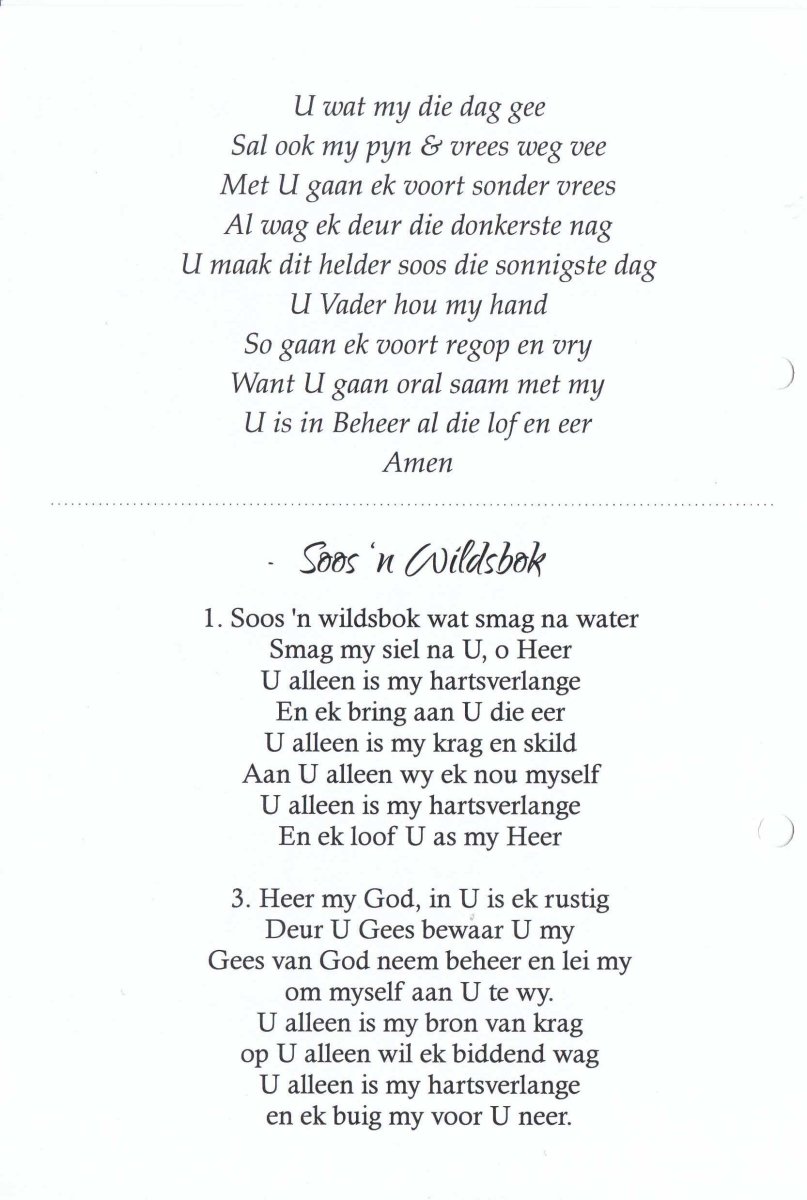 U wat my die dag gee
Sal ook my pyn & vrees weg vee
Met U gaan ek voort sonder vrees
Al wag ek deur die donkerste nag
U maak dit helder soos die sonnigste dag
U Vader hou my hand
So gaan ek voort regop en vry
Want U gaan oral saam met my
U is in Beheer al die lof en eer
Amen
- Soos 'n Wildsbok
1. Soos 'n wildsbok wat smag na water
Smag my siel na U, o Heer
U alleen is my hartsverlange
En ek bring aan U die eer
U alleen is my krag en skild
Aan U alleen wy ek nou myself
U alleen is my hartsverlange
En ek loof U as my Heer
3. Heer my God, in U is ek rustig
Deur U Gees bewaar U my
Gees van God neem beheer en lei my
om myself aan U te wy.
U alleen is my bron van krag
op U alleen wil ek biddend wag
U alleen is my hartsverlange
en ek buig my voor U neer.